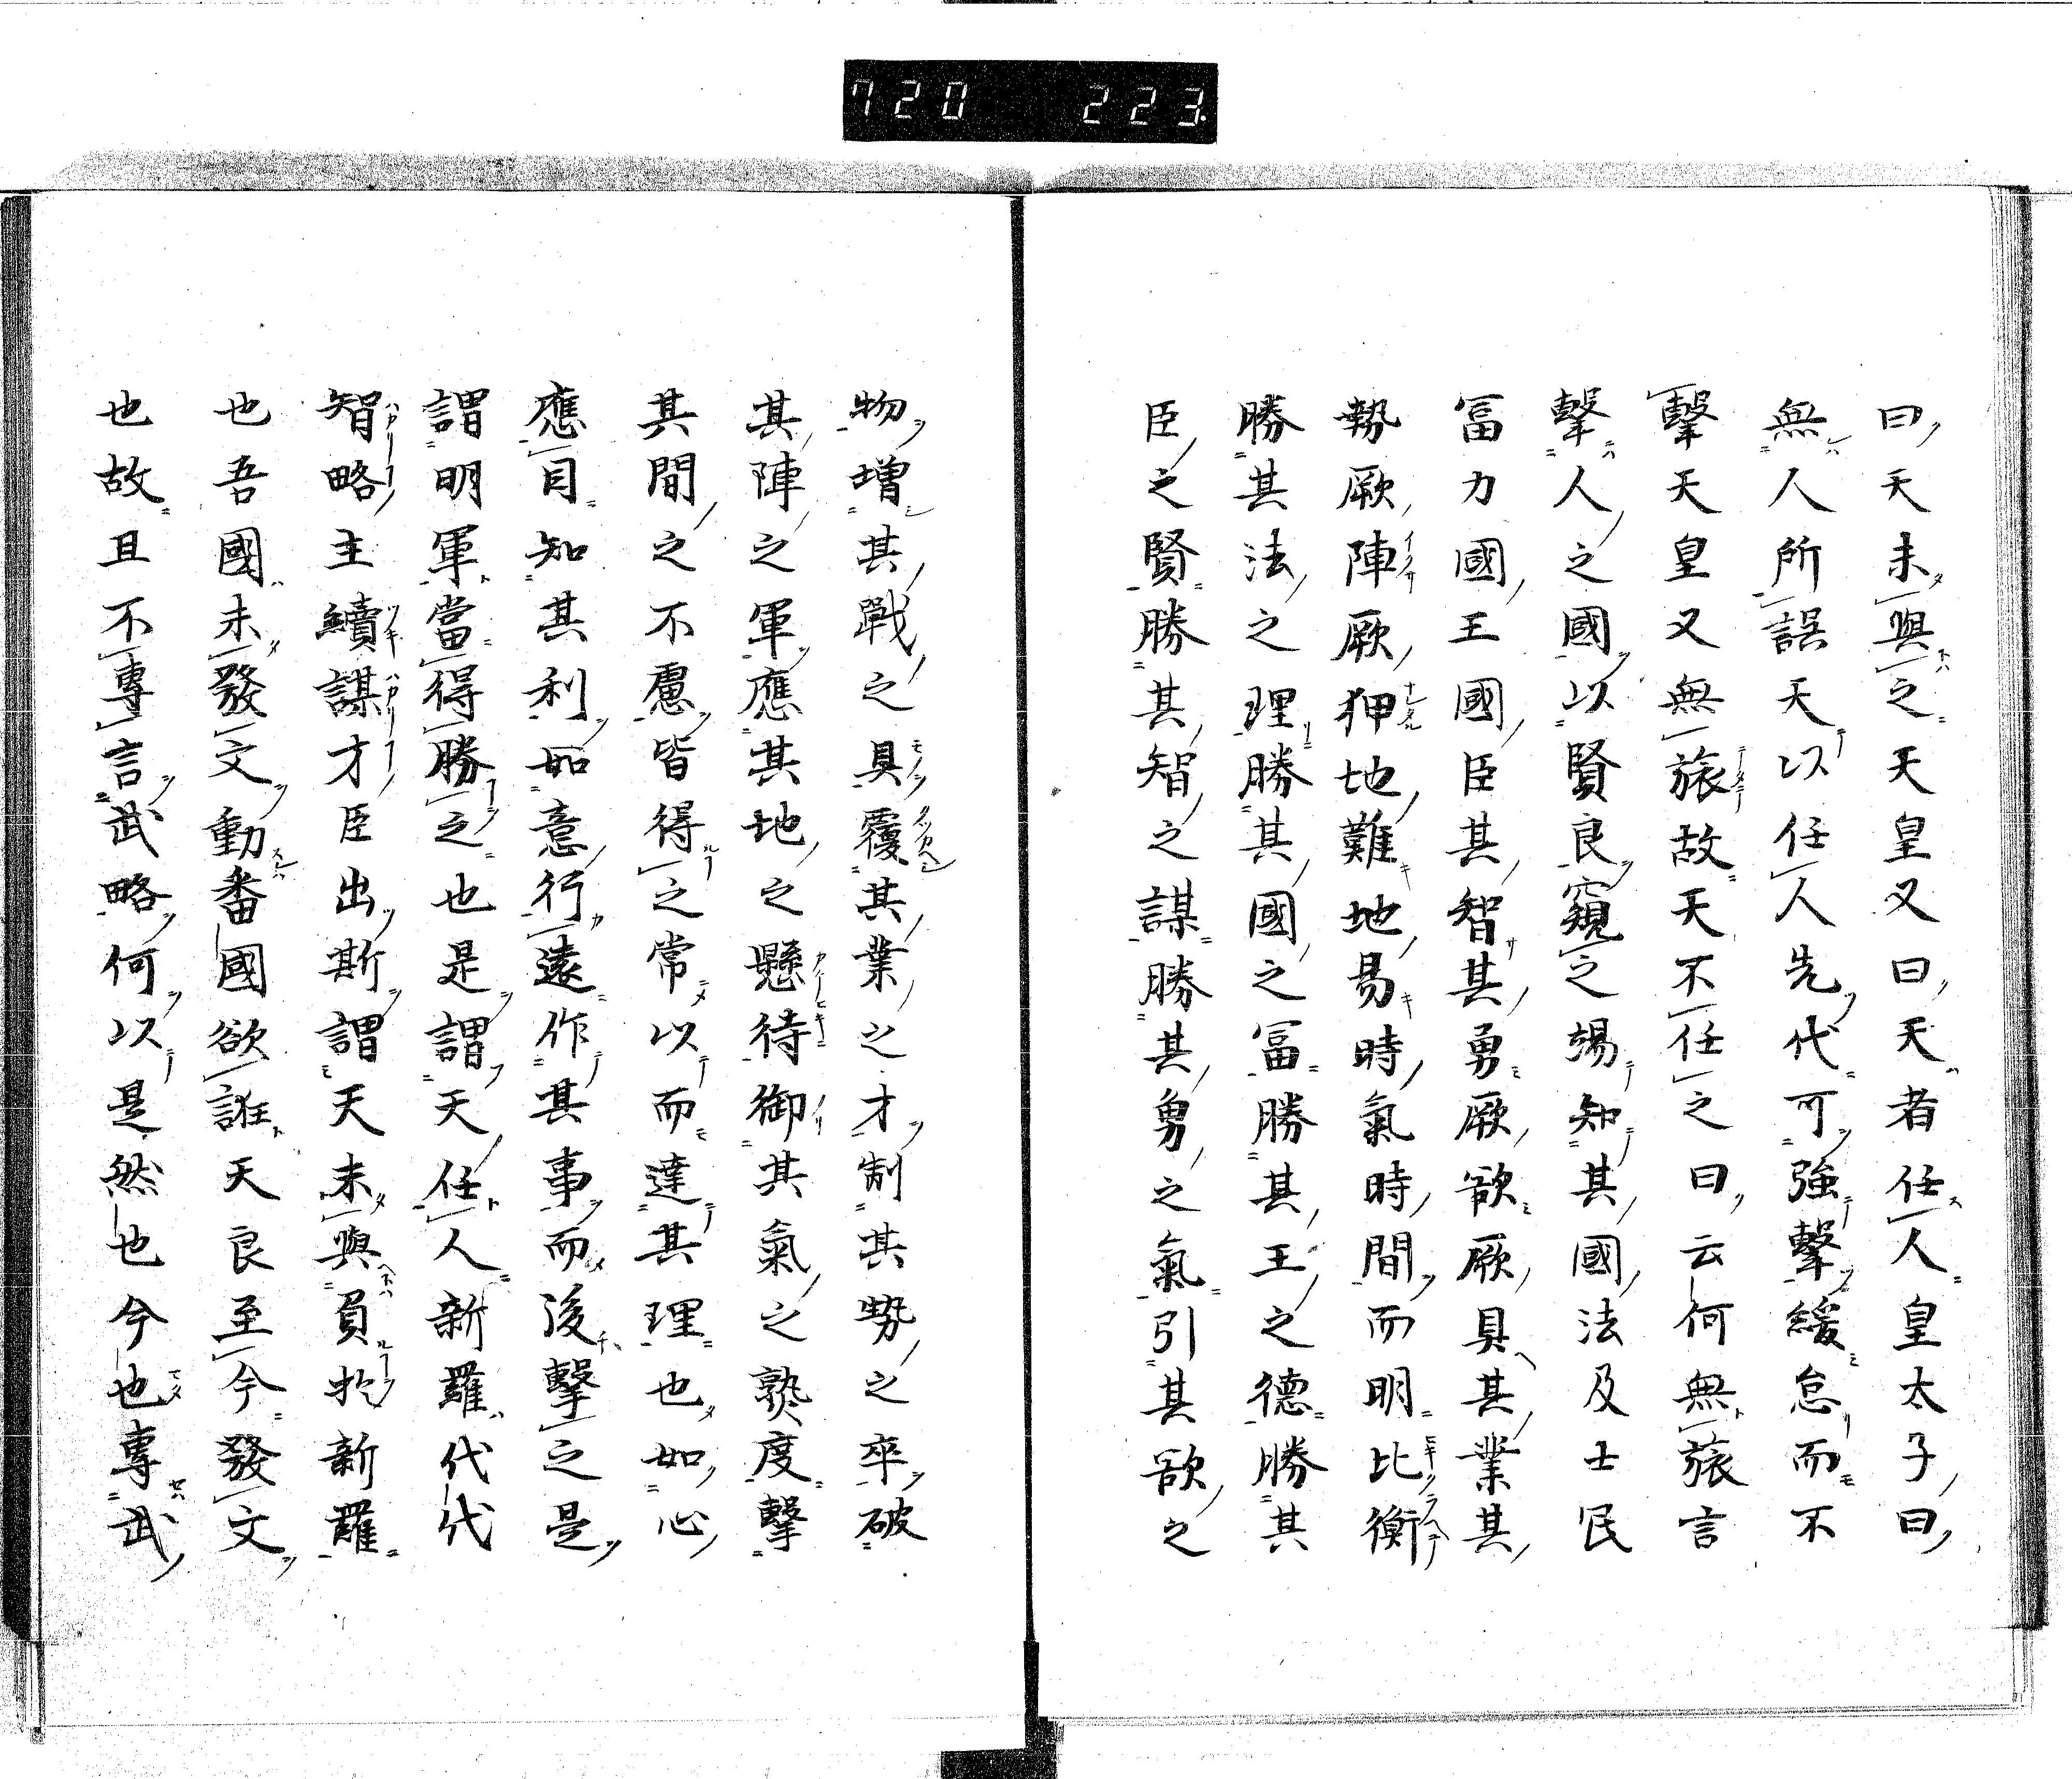 720 223
曰天未與之天皇又曰天者任人皇太子曰
無人所誤天以任人先代可強擊緩怠而不
擊天皇又無旅故天不任之曰云何無旅言
擊人之國以賢良窺之場知其國法及士民
冨力國王國臣其智其勇厥欲厥具其業其
勢厥陣厥狎地難地易時氣時間而明比衡
勝其法之理勝其國之冨勝其王之德勝其
臣之賢勝其智之謀勝其勇之氣引其欲之
物増其戰之具覆其業之才制其勢之卒破
其陣之軍應其地之懸待御其氣之熟度擊
其間之不慮皆得之常以而達其理也如心
應目知其利如意行遠作其事而後擊之是
謂明軍當得勝之也是謂天任人新羅代代
智略主續謀才臣出斯謂天未與負於新羅
也吾國未發文動番國欲誑天良至今發文
也故且不專言武略何以是然也今也專武